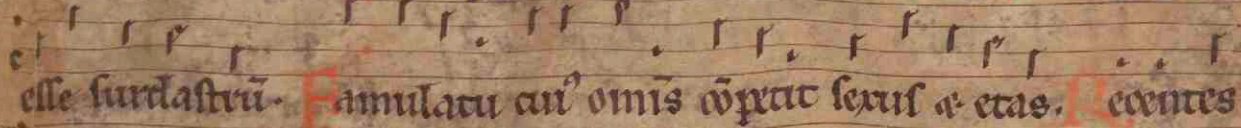 esse surdastrū. Famulatu cuiꝰ omīs cōpetit sexus & etas. Recentes